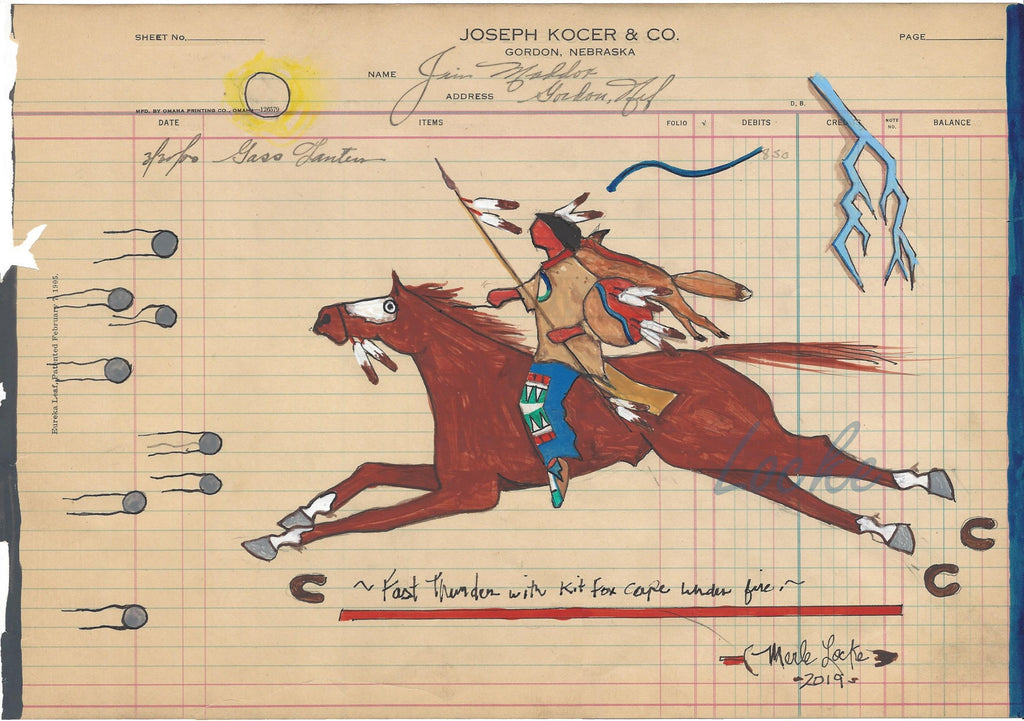 SHEET No.
JOSEPH KOCER & CO.
PAGE
GORDON, NEBRASKA
NAME Jim Maddox
ADDRESS Gordon, Neb
MFD. BY OMAHA PRINTING CO., OMAHA—126579
D. B.
DATE ITEMS FOLIO √ DEBITS CREDITS NOTE NO. BALANCE
Gass Lantern 850
Eureka Leaf, Patented February 7, 1905.
Locke
~ Fast Thunder with Kit Fox cape under fire. ~
Merle Locke
-2019-